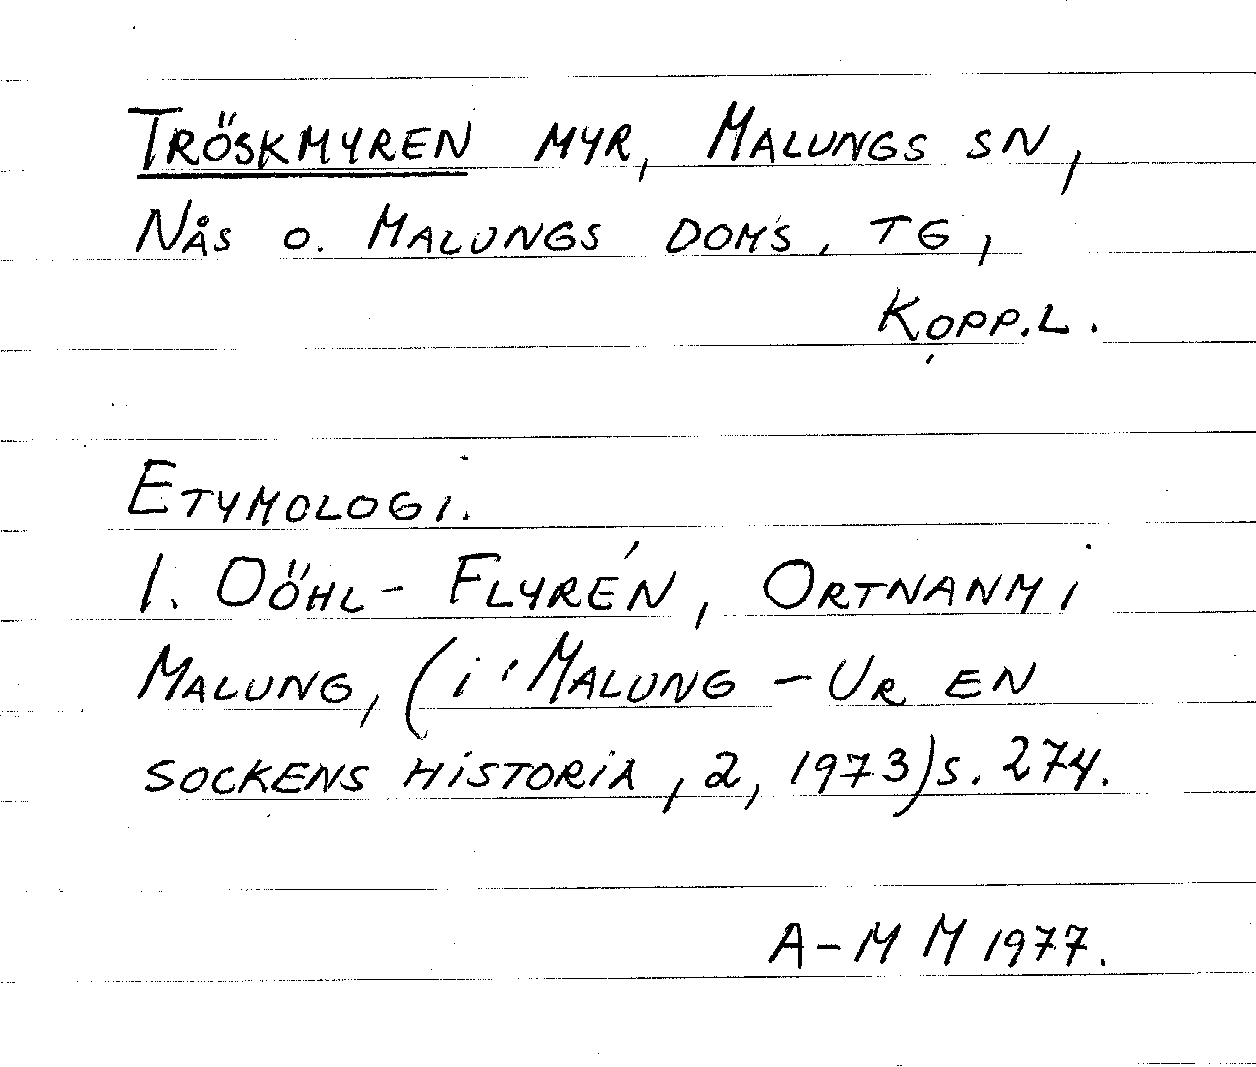 TRÖSKMYREN MYR, MALUNGS SN,
NÅS O. MALUNGS DOMS. TG,
KOPP.L.
ETYMOLOGI.
1. OÖHL- FLYRÉN, ORTNANM I
MALUNG, (I 'MALUNG - UR EN
SOCKENS HISTORIA, 2, 1973) S. 274.
A-M M 1977.